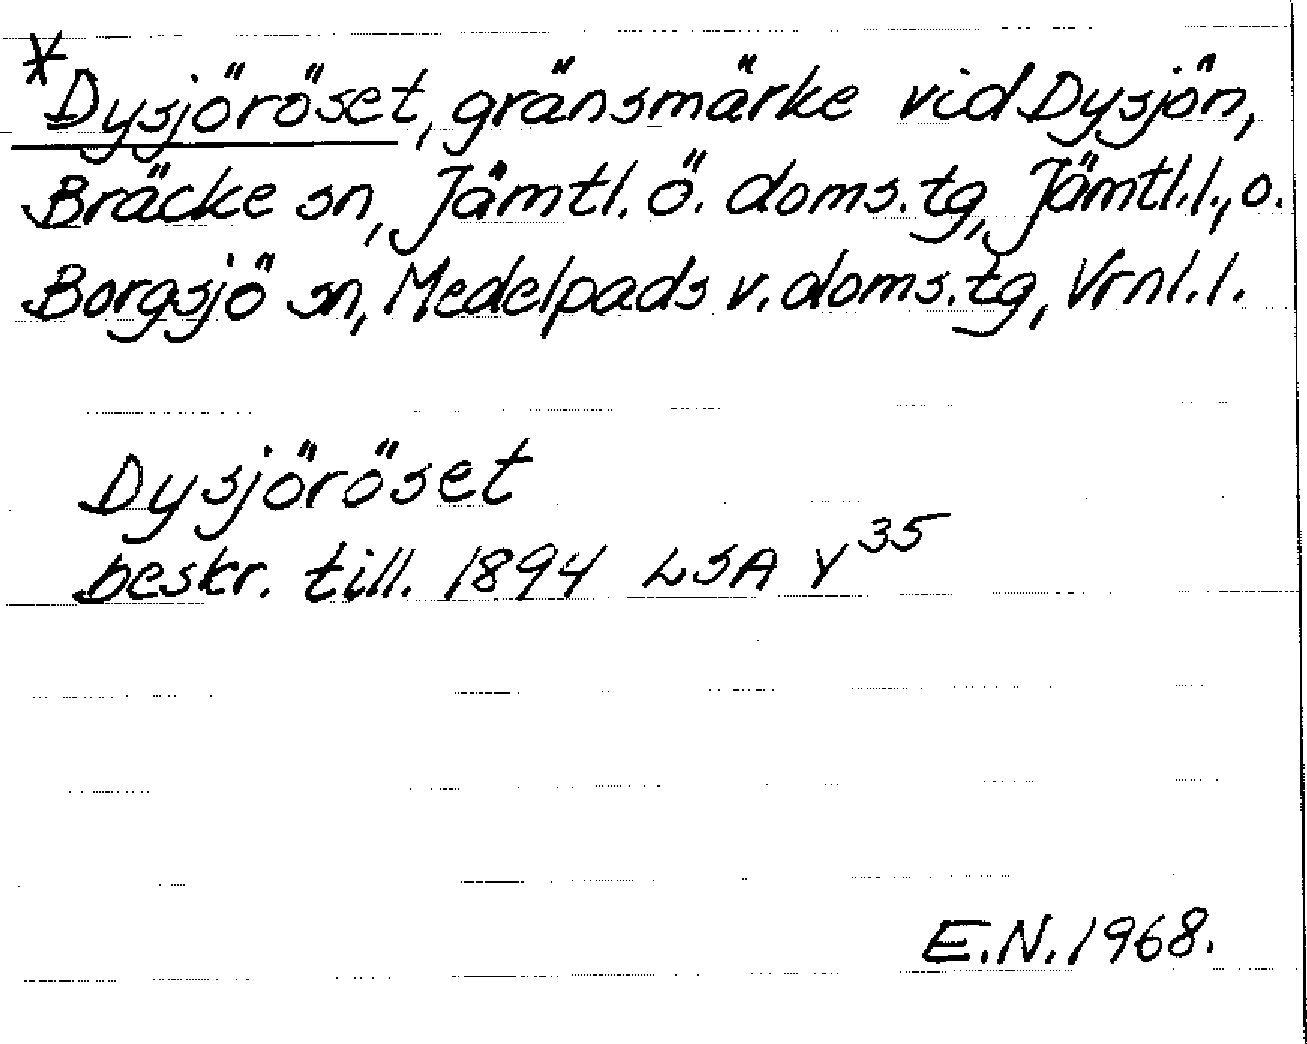 *Dysjöröset, gränsmärke vid Dysjön,
Bräcke sn, Jämtl. ö. doms.tg, Jämtl.l., o.
Borgsjö sn, Medelpads v. doms.tg, Vrnl.l.
Dysjöröset
beskr. till. 1894 LSA Y³⁵
E.N. 1968.